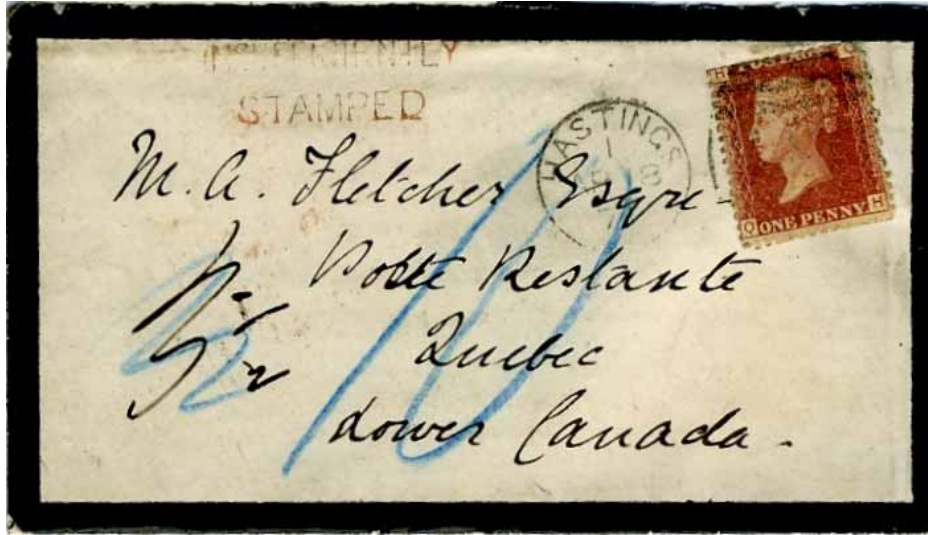 INSUFFICIENTLY
STAMPED
HASTINGS
1
8
H Q
ONE PENNY
Q H
M. A. Fletcher Esqre.
Poste Restante
Quebec
Lower Canada.
10